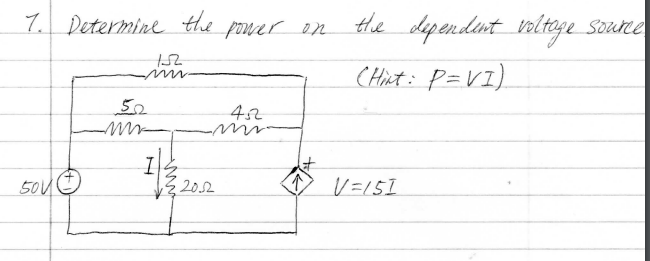 7. Determine the power on the dependent voltage source
1Ω
(Hint: P=VI)
5Ω 4Ω
I
+
50V + − 20Ω V=15I